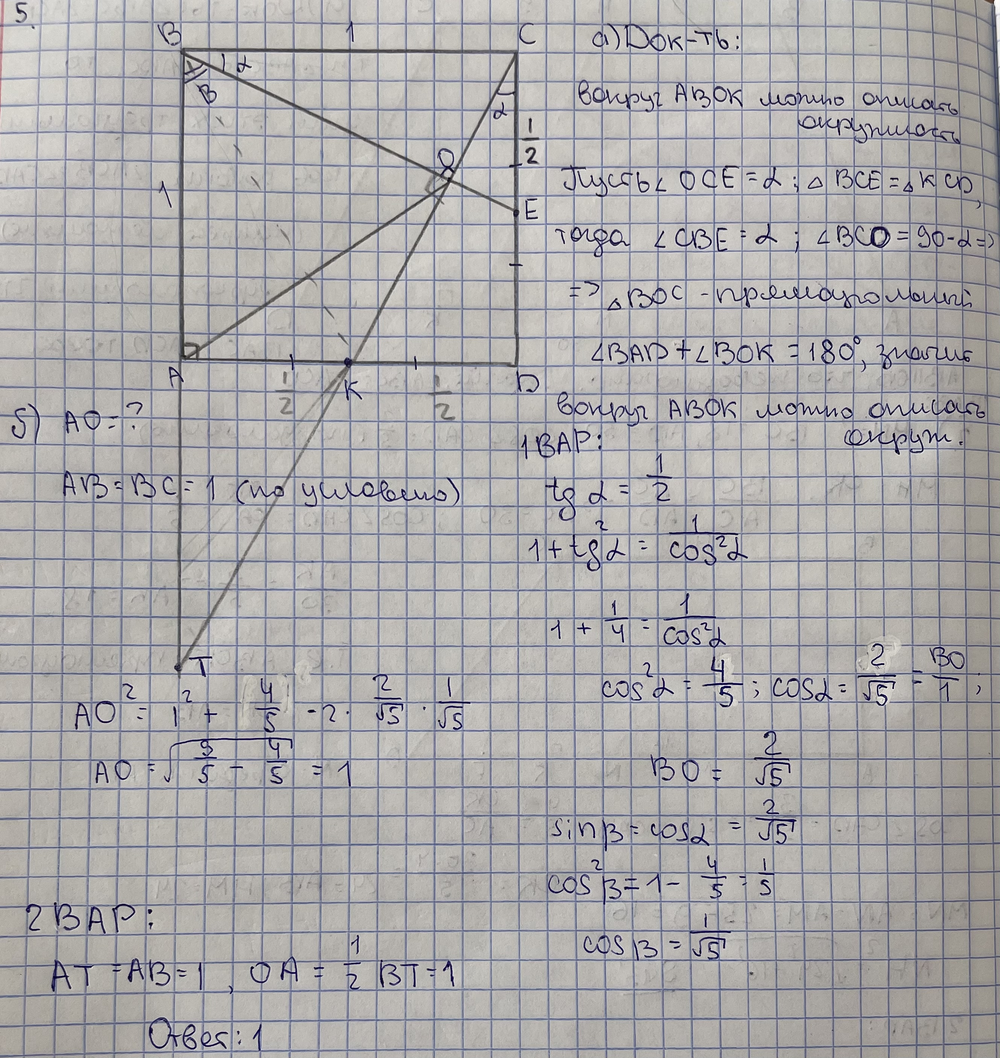 5.
B 1 C
α
B
α
1/2
1
O
E
A
1/2
K
1/2
D
T
а) Док-ть:
вокруг ABOK можно описать
окружность
Пусть ∠OCE = α; △BCE = △KCD,
тогда ∠CBE = α; ∠BCO = 90-α =>
=> △BOC - прямоугольный
∠BAD + ∠BOK = 180°, значит
вокруг ABOK можно описать
окруж.
б) AO = ?
AB = BC = 1 (по условию)
1 ВАР:
tg α = 1/2
1 + tg²α = 1/cos²α
1 + 1/4 = 1/cos²α
cos²α = 4/5; cosα = 2/√5 = BO/1;
BO = 2/√5
sinβ = cosα = 2/√5
cos²β = 1 - 4/5 = 1/5
cosβ = 1/√5
AO² = 1² + 4/5 - 2 · 2/√5 · 1/√5
AO = √(9/5 - 4/5) = 1
2 ВАР:
AT = AB = 1, OA = 1/2 BT = 1
Ответ: 1